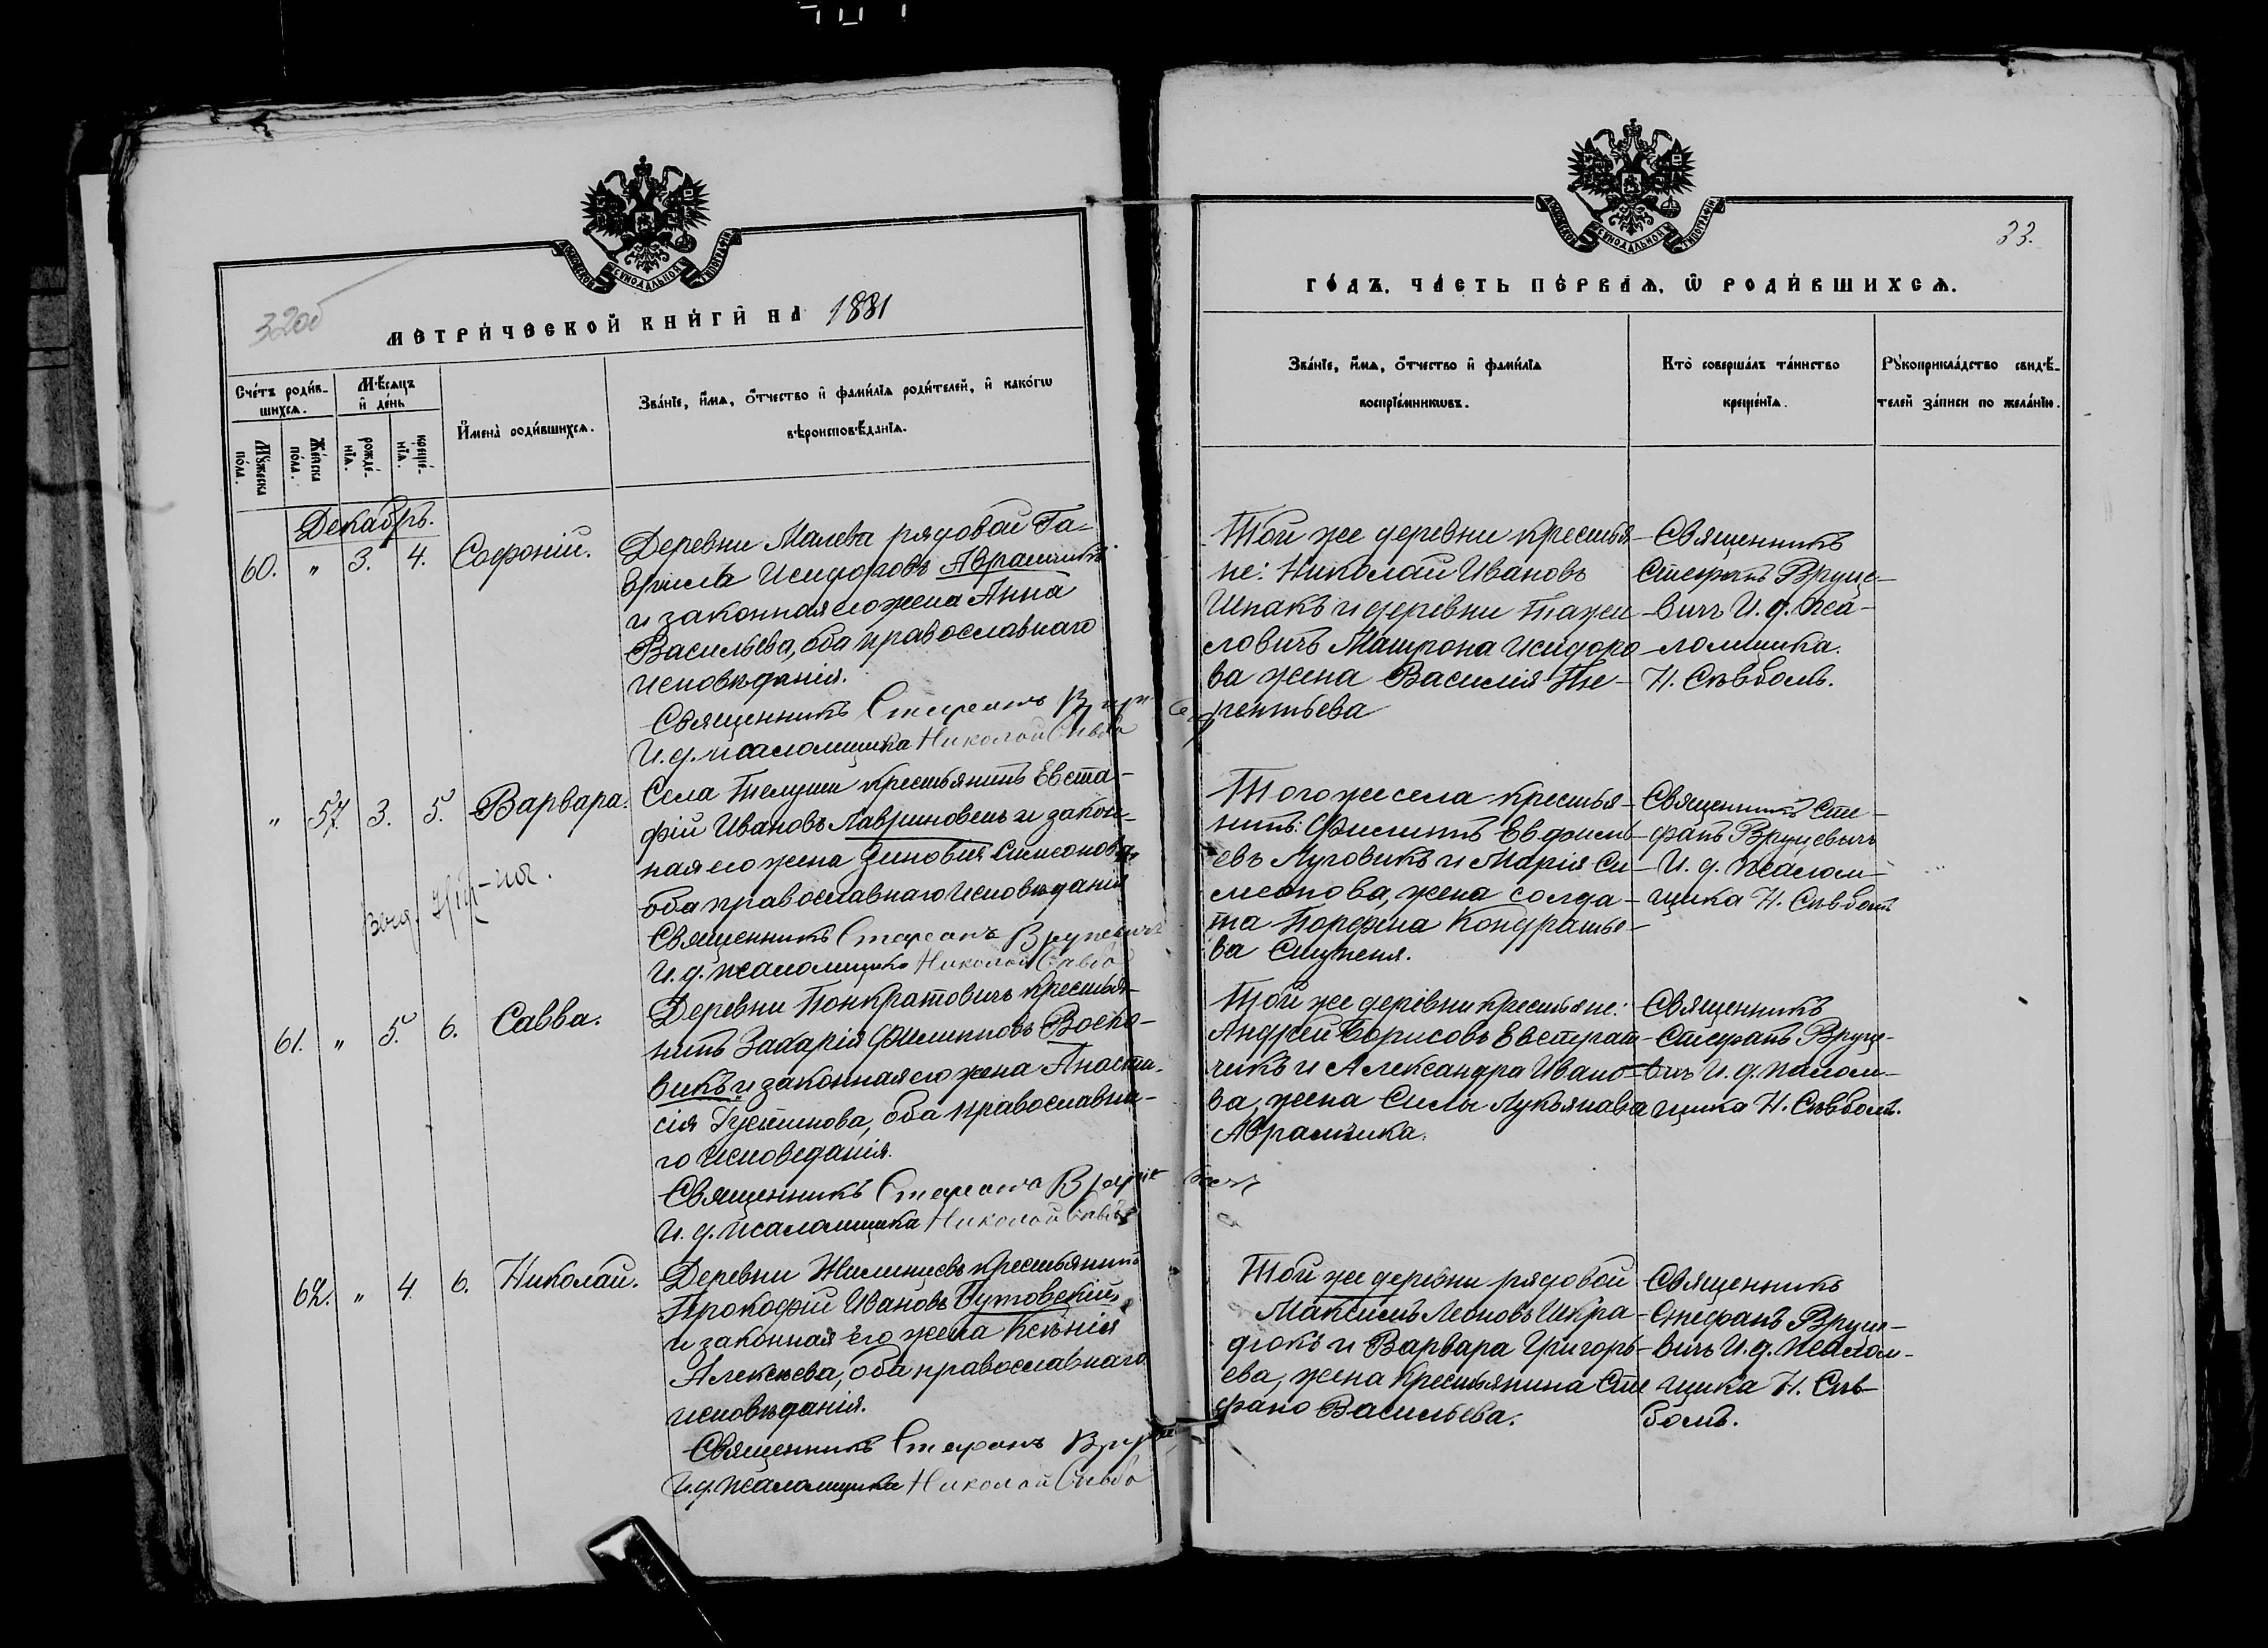 32об
МЕТРИ́ЧЕСКОЙ КНИ́ГИ НА 1881
Сче́тъ роди́в-
шихсѧ.
Мѣ́сѧцъ
и҆ де́нь
Мꙋ́жеска
по́ла.
Же́нска
по́ла.
рожде́-
нїѧ.
креще́-
нїѧ.
И҆мена̀ роди́вшихсѧ.
Зва́нїе, и҆́мѧ, ѻ҆́тчество и҆ фами́лїѧ роди́телей, и҆ како́гѡ
вѣроисповѣ́данїѧ.
Декабрь.
60. " 3. 4. Софоній.
Деревни Малева рядовой Га-
вріилъ Исидоровъ Аврамчикъ
и законная его жена Анна
Васильева, оба православнаго
исповѣданія.
Священникъ Стефанъ
И. д. псаломщика Николай
" 57. 3. 5. Варвара.
Села Телуши крестьянинъ Евста-
фій Ивановъ Лавриновецъ и закон-
ная его жена Зиновія Симеонова,
оба православнаго исповѣданія
Священникъ Стефанъ Вруцевичъ
И. д. псаломщика Николай
61. " 5. 6. Савва.
Деревни Понкратовичъ крестья-
нинъ Захарія Филиповъ Воско-
викъ и законная его жена Анаста-
сія Іустинова, оба православна-
го исповеданія.
Священникъ Стефанъ Вруце вичъ
И. д. псаломщика Николай
62. " 4. 6. Николай.
Деревни Жилинцевъ крестьянинъ
Прокофій Ивановъ Бутовскій,
и законная его жена Ксенія
Алексѣева, оба православнаго
исповѣданія.
Священникъ Стефанъ
И. д. псаломщика Николай
33.
ГО́ДЪ. ЧА́СТЬ ПЕ́РВАѦ, Ѡ҆ РОДИ́ВШИХСѦ.
Зва́нїе, и҆́мѧ, ѻ҆́тчество и҆ фами́лїѧ
воспрїе́мникѡвъ.
Кто̀ соверша́лъ та́инство
креще́нїѧ.
Рꙋкоприкла́дство свидѣ́-
телей за́писи по жела́нїю.
Той же деревни крестья-
не: Николай Ивановъ
Шпакъ и деревни Тажи-
ловичъ Матрона Исидоро-
ва жена Василія Те-
рентьева
Священникъ
Стефанъ Вруце-
вичъ И. д. пса-
ломщика.
Н. Съвболь.
Того же села крестья-
нинъ: Филиппъ Евфимь-
евъ Луговикъ и Марія Си-
меонова, жена солда-
та Порфена Кондратье-
ва Ступеня.
Священникъ Сте-
фанъ Вруцевичъ
И. д. псалом-
щика Н. Съвболь
Той же деревни крестьяне:
Андрей Борисовъ Евстрат-
чикъ и Александра Ивано-
ва, жена Силы Лукьянава
Аврамчика.
Священникъ
Стефанъ Вруце-
вичъ И. д. псалом-
щика Н. Съвболь.
Той же деревни рядовой
Максимъ Леоновъ Шкра-
дюкъ и Варвара Григорь-
ева, жена крестьянина Сте
фано Васильева.
Священникъ
Стефанъ Вруце-
вичъ И. д. псалом-
щика Н. Съв-
боль.